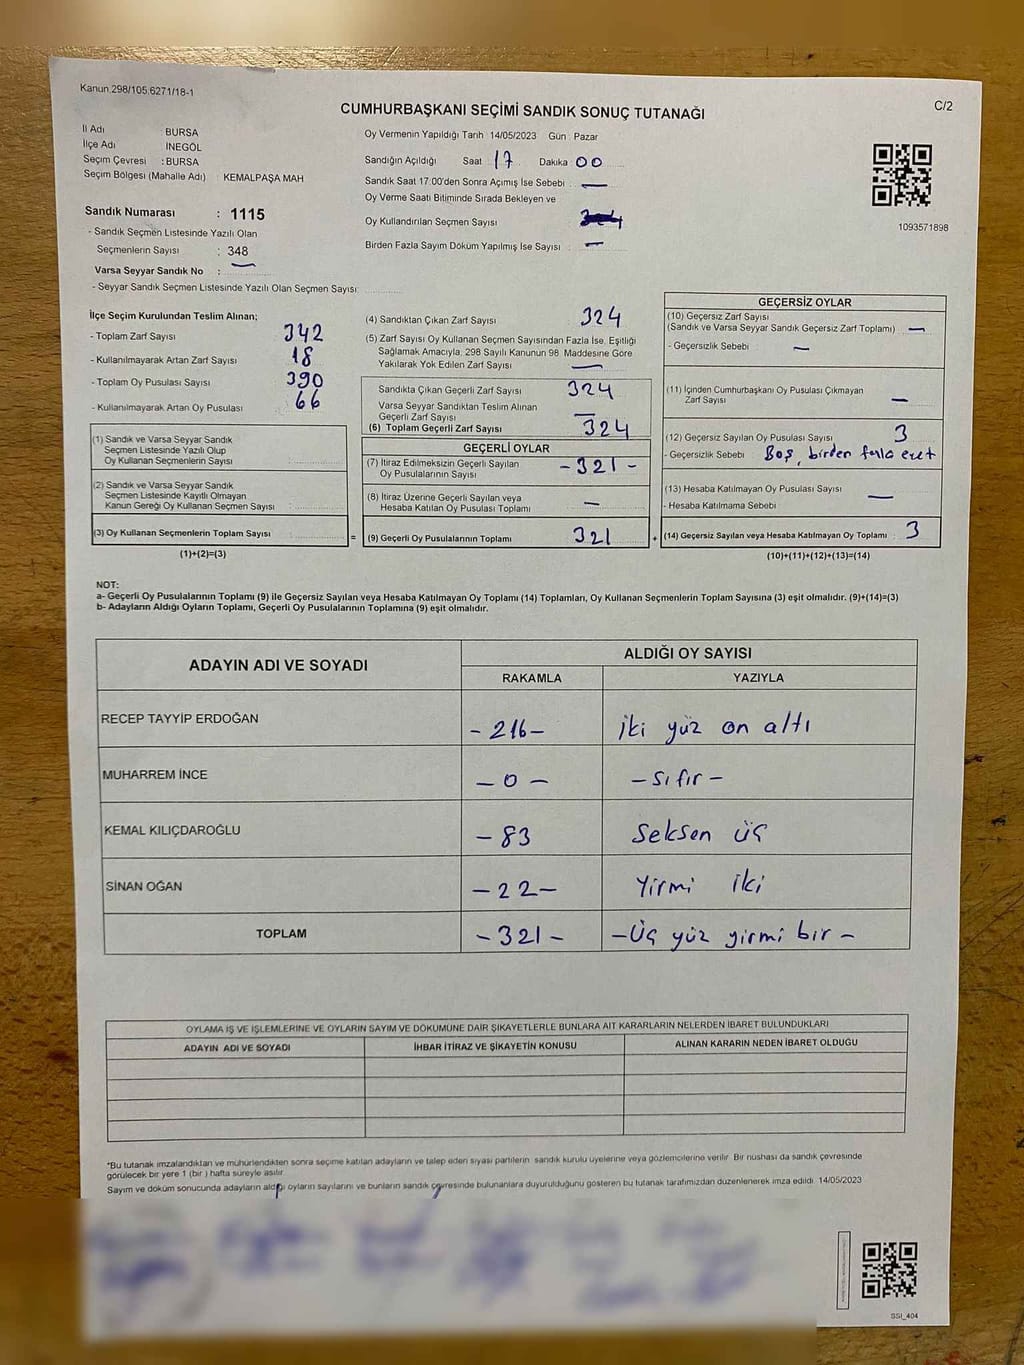 Kanun.298/105,6271/18-1
C/2
CUMHURBAŞKANI SEÇİMİ SANDIK SONUÇ TUTANAĞI
İl Adı BURSA
İlçe Adı İNEGÖL
Seçim Çevresi : BURSA
Seçim Bölgesi (Mahalle Adı) : KEMALPAŞA MAH
Sandık Numarası : 1115
- Sandık Seçmen Listesinde Yazılı Olan
Seçmenlerin Sayısı : 348
Varsa Seyyar Sandık No : —
- Seyyar Sandık Seçmen Listesinde Yazılı Olan Seçmen Sayısı:
Oy Vermenin Yapıldığı Tarih : 14/05/2023 Gün : Pazar
Sandığın Açıldığı Saat : 17 Dakika : 00
Sandık Saat 17:00'den Sonra Açımış İse Sebebi : —
Oy Verme Saati Bitiminde Sırada Bekleyen ve
Oy Kullandırılan Seçmen Sayısı :
Birden Fazla Sayım Döküm Yapılmış İse Sayısı : —
1093571898
İlçe Seçim Kurulundan Teslim Alınan;
- Toplam Zarf Sayısı : 342
- Kullanılmayarak Artan Zarf Sayısı : 18
- Toplam Oy Pusulası Sayısı : 390
- Kullanılmayarak Artan Oy Pusulası : 66
(1) Sandık ve Varsa Seyyar Sandık
Seçmen Listesinde Yazılı Olup
Oy Kullanan Seçmenlerin Sayısı :
(2) Sandık ve Varsa Seyyar Sandık
Seçmen Listesinde Kayıtlı Olmayan
Kanun Gereği Oy Kullanan Seçmen Sayısı :
(3) Oy Kullanan Seçmenlerin Toplam Sayısı : =
(1)+(2)=(3)
(4) Sandıktan Çıkan Zarf Sayısı : 324
(5) Zarf Sayısı Oy Kullanan Seçmen Sayısından Fazla İse, Eşitliği
Sağlamak Amacıyla, 298 Sayılı Kanunun 98. Maddesine Göre
Yakılarak Yok Edilen Zarf Sayısı : —
Sandıkta Çıkan Geçerli Zarf Sayısı : 324
Varsa Seyyar Sandıktan Teslim Alınan
Geçerli Zarf Sayısı : —
(6) Toplam Geçerli Zarf Sayısı : 324
GEÇERLİ OYLAR
(7) İtiraz Edilmeksizin Geçerli Sayılan
Oy Pusulalarının Sayısı : -321-
(8) İtiraz Üzerine Geçerli Sayılan veya
Hesaba Katılan Oy Pusulası Toplamı : —
(9) Geçerli Oy Pusulalarının Toplamı : 321 +
GEÇERSİZ OYLAR
(10) Geçersiz Zarf Sayısı
(Sandık ve Varsa Seyyar Sandık Geçersiz Zarf Toplamı) : —
- Geçersizlik Sebebi : —
(11) İçinden Cumhurbaşkanı Oy Pusulası Çıkmayan
Zarf Sayısı : —
(12) Geçersiz Sayılan Oy Pusulası Sayısı : 3
- Geçersizlik Sebebi : Boş, birden fazla evet
(13) Hesaba Katılmayan Oy Pusulası Sayısı : —
- Hesaba Katılmama Sebebi :
(14) Geçersiz Sayılan veya Hesaba Katılmayan Oy Toplamı : 3
(10)+(11)+(12)+(13)=(14)
NOT:
a- Geçerli Oy Pusulalarının Toplamı (9) ile Geçersiz Sayılan veya Hesaba Katılmayan Oy Toplamı (14) Toplamları, Oy Kullanan Seçmenlerin Toplam Sayısına (3) eşit olmalıdır. (9)+(14)=(3)
b- Adayların Aldığı Oyların Toplamı, Geçerli Oy Pusulalarının Toplamına (9) eşit olmalıdır.
ADAYIN ADI VE SOYADI
ALDIĞI OY SAYISI
RAKAMLA YAZIYLA
RECEP TAYYİP ERDOĞAN -216- iki yüz on altı
MUHARREM İNCE -0- -sıfır-
KEMAL KILIÇDAROĞLU -83 Seksen üç
SİNAN OĞAN -22- Yirmi iki
TOPLAM -321- -Üç yüz yirmi bir-
OYLAMA İŞ VE İŞLEMLERİNE VE OYLARIN SAYIM VE DÖKÜMÜNE DAİR ŞİKAYETLERLE BUNLARA AİT KARARLARIN NELERDEN İBARET BULUNDUKLARI
ADAYIN ADI VE SOYADI İHBAR İTİRAZ VE ŞİKAYETİN KONUSU ALINAN KARARIN NEDEN İBARET OLDUĞU
*Bu tutanak imzalandıktan ve mühürlendikten sonra seçime katılan adayların ve talep eden siyasi partilerin sandık kurulu üyelerine veya gözlemcilerine verilir. Bir nüshası da sandık çevresinde
görülecek bir yere 1 (bir) hafta süreyle asılır.
Sayım ve döküm sonucunda adayların aldığı oyların sayılarını ve bunların sandık çevresinde bulunanlara duyurulduğunu gösteren bu tutanak tarafımızdan düzenlenerek imza edildi. 14/05/2023
SSI_404